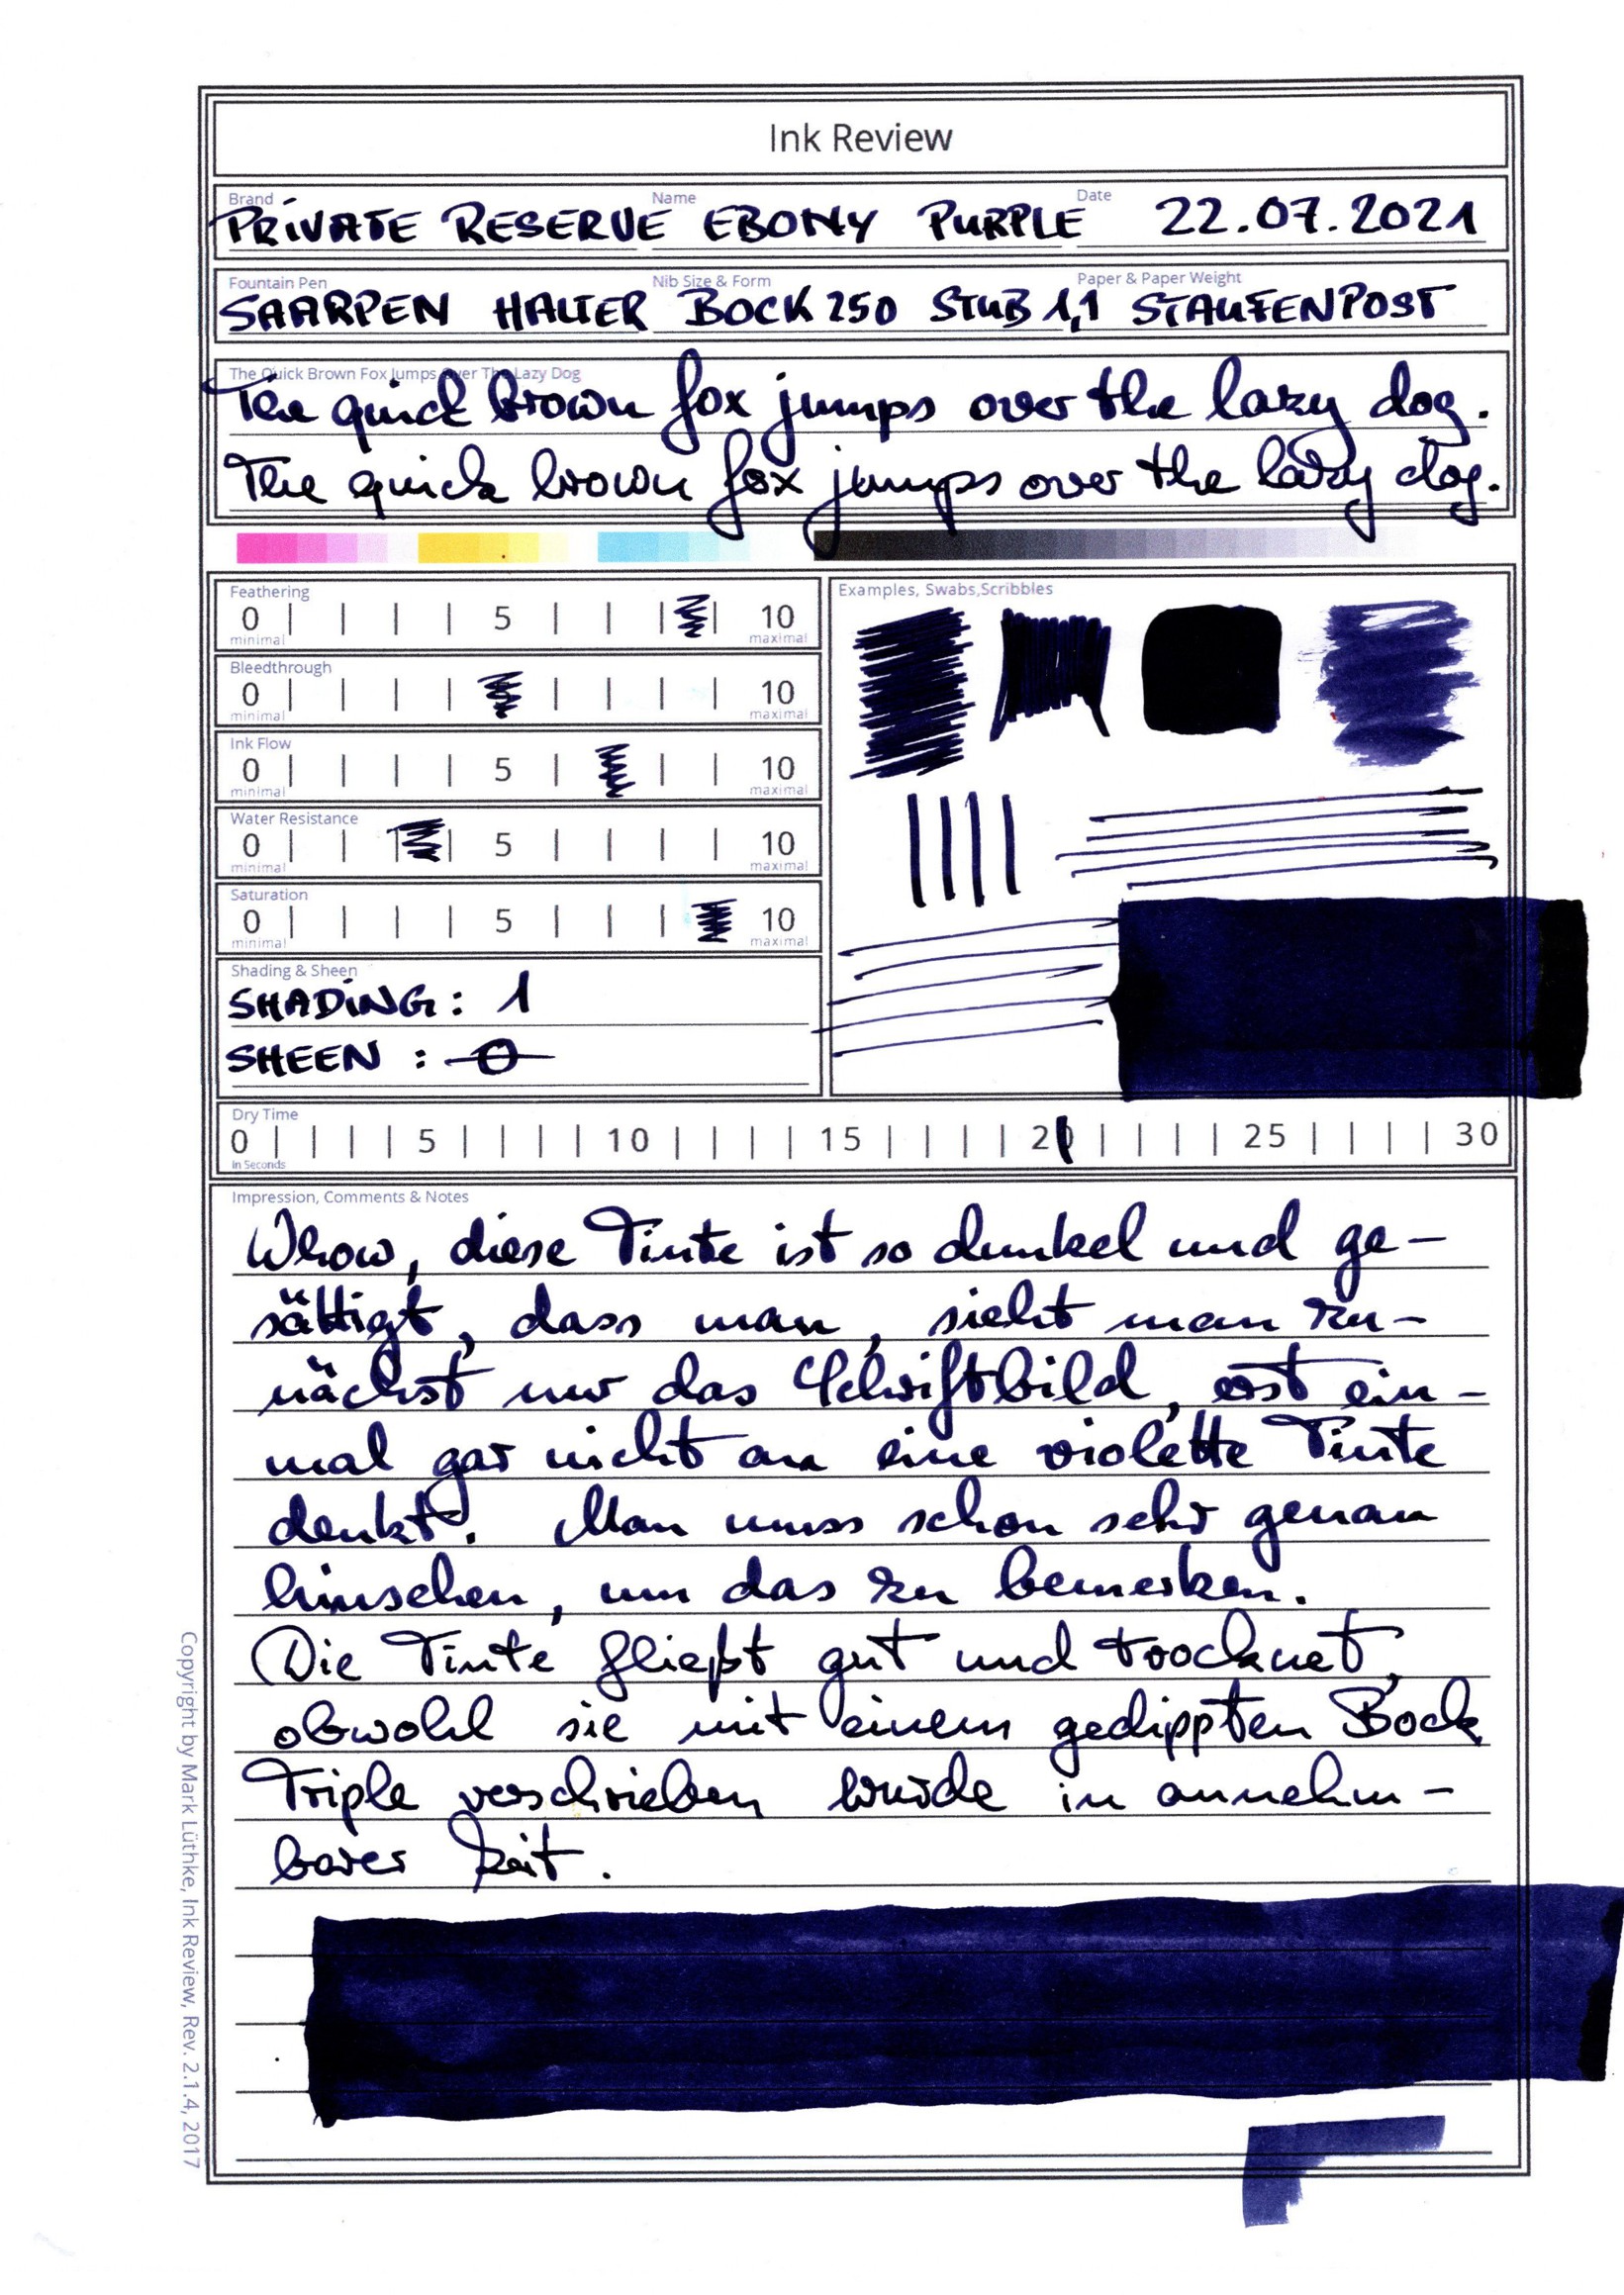 Ink Review
Brand Name Date
PRiVATE RESERVE EBONY PURPLE 22.07.2021
Fountain Pen Nib Size & Form Paper & Paper Weight
SAARPEN HALTER BOCK 250 STUB 1,1 STAUFENPOST
The Quick Brown Fox Jumps Over The Lazy Dog
The quick brown fox jumps over the lazy dog.
The quick brown fox jumps over the lazy dog.
Feathering
0 | | | | 5 | | | | 10
minimal maximal
Bleedthrough
0 | | | | 5 | | | | 10
minimal maximal
Ink Flow
0 | | | | 5 | | | | 10
minimal maximal
Water Resistance
0 | | | | 5 | | | | 10
minimal maximal
Saturation
0 | | | | 5 | | | | 10
minimal maximal
Shading & Sheen
SHADiNG: 1
SHEEN : 0
Examples, Swabs,Scribbles
Dry Time
0 | | | | 5 | | | | 10 | | | | 15 | | | | 20 | | | | 25 | | | | 30
In Seconds
Impression, Comments & Notes
Whow, diese Tinte ist so dunkel und ge-
sättigt, dass man, sieht man zu-
nächst nur das Schriftbild, erst ein-
mal gar nicht an eine violette Tinte
denkt. Man muss schon sehr genau
hinsehen, um das zu bemerken.
Die Tinte fließt gut und trocknet,
obwohl sie mit einem gedippten Bock
Triple verschrieben wurde in annehm-
barer Zeit.
Copyright by Mark Lüthke, Ink Review, Rev. 2.1.4, 2017